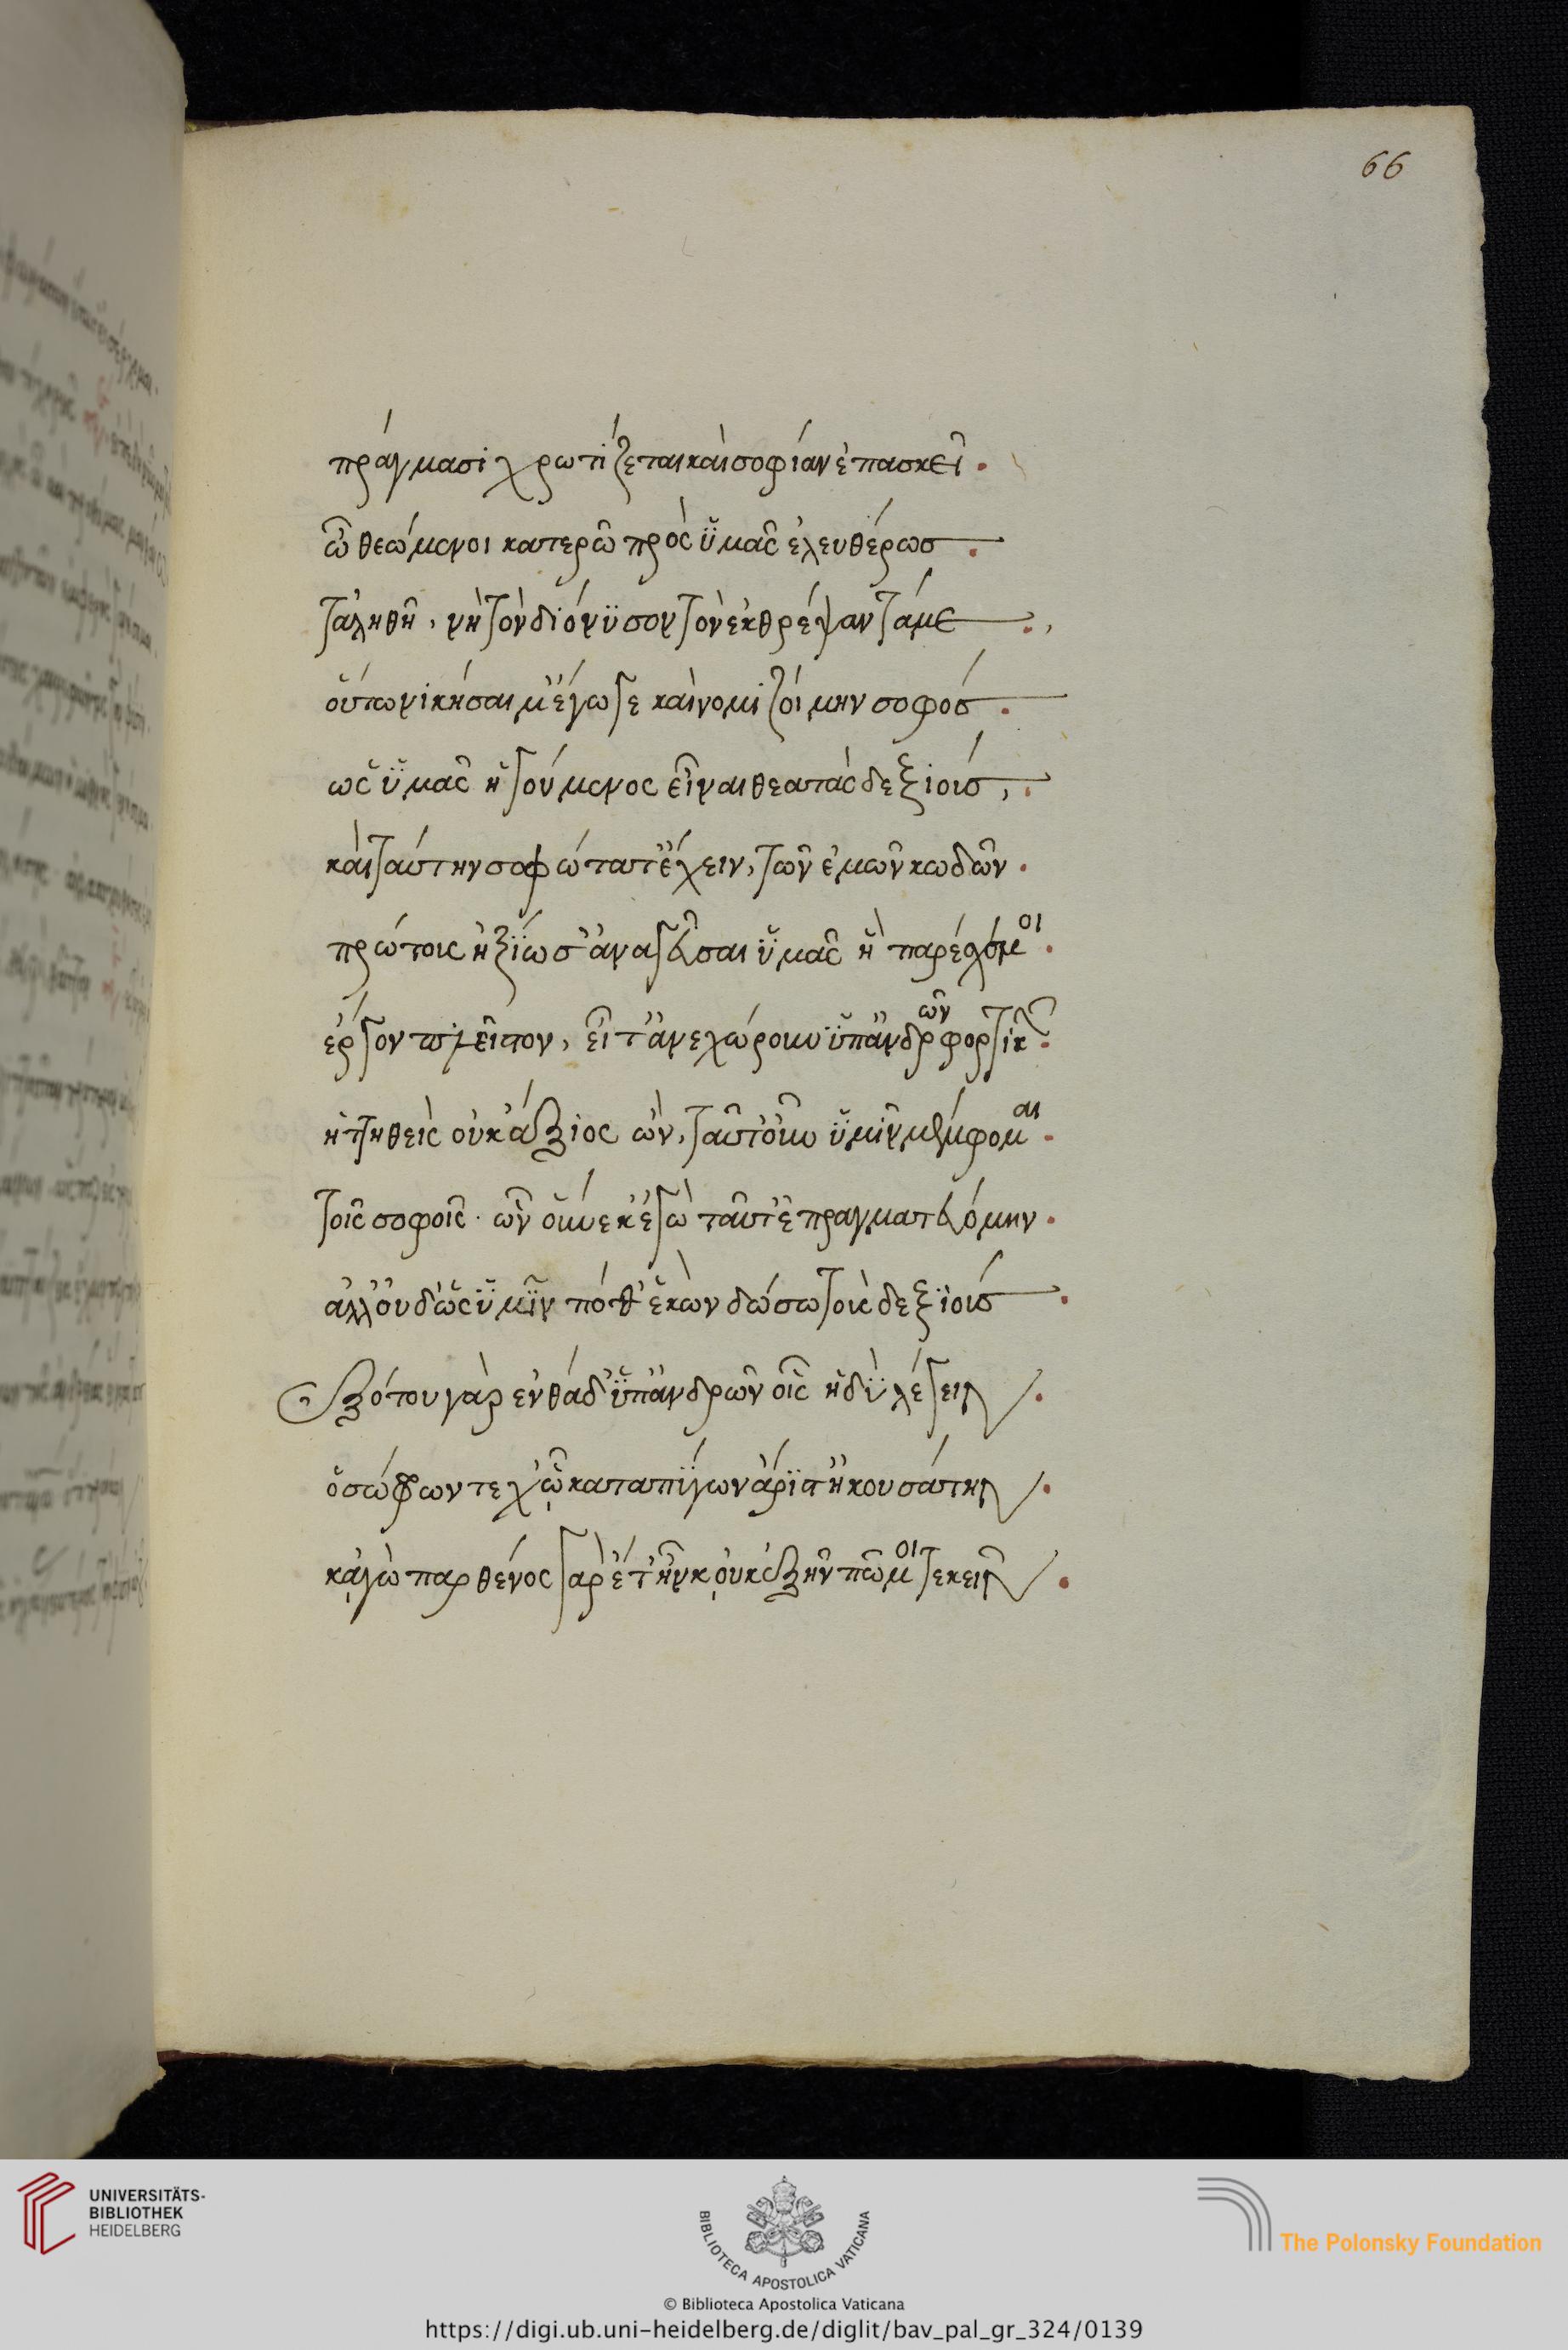 66
πράγμασι χρωτίζεται καὶ σοφίαν ἐπασκεῖ.
ὦ θεώμενοι κατερῶ πρὸς ὑμᾶς ἐλευθέρως.
τἀληθῆ, νὴ τὸν διόνυσον τὸν ἐκθρέψαντά με.,
οὕτω νικήσαιμ' ἔγωγε καὶ νομιζοίμην σοφός.
ὡς ὑμᾶς ἡγούμενος εἶναι θεατὰς δεξιούς,.
καὶ ταύτην σοφώτατ' ἔχειν, τῶν ἐμῶν κωδῶν.
πρώτους ἠξίωσ' ἀναγεῦσαι ὑμᾶς ἣ παρέσχέ μοι.
ἔργον πλεῖστον, εἶτ' ἀνεχώρουν ὑπ' ἀνδρῶν φορτικῶν.
ἡττηθεὶς οὐκ ἄξιος ὤν, ταῦτ' οὖν ὑμῖν μέμφομαι.
τοῖς σοφοῖς. ὧν οὕνεκ' ἐγὼ ταῦτ' ἐπραγματευόμην.
ἀλλ' οὐδ' ὣς ὑμῖν πόθ' ἑκὼν δώσω τοὺς δεξιούς.
ἐξ ὅτου γὰρ ἐνθάδ' ὑπ' ἀνδρῶν οἷς ἡδὺ λέγειν.
ὁ σώφρων τε χ' ᾧ καταπύγων ἄριστ' ἠκουσάτην.
κἀγὼ παρθένος γὰρ ἔτ' ἦν κοὐκ ἐξῆν πώ μοι τεκεῖν.
UNIVERSITÄTS-
BIBLIOTHEK
HEIDELBERG
BIBLIOTECA APOSTOLICA VATICANA
The Polonsky Foundation
© Biblioteca Apostolica Vaticana
https://digi.ub.uni-heidelberg.de/diglit/bav_pal_gr_324/0139